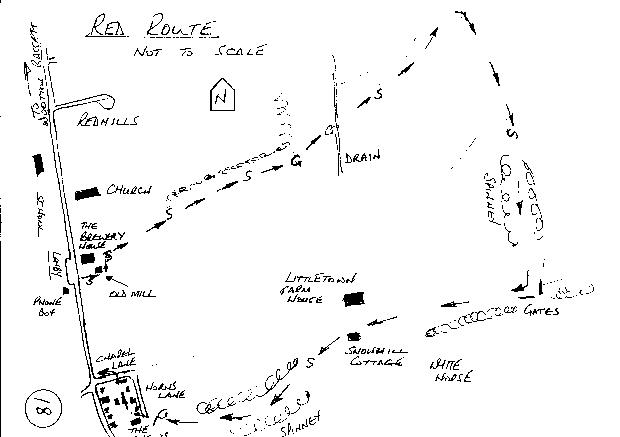 RED ROUTE
NOT TO SCALE
TO
N
REDHILLS
S
G
G
S
DRAIN
S
CHURCH
S
S
SANNEY
THE
BREWERY
HOUSE
S
OLD MILL
LAYBY
PHONE
BOX
LITTLETOWN
FARM
HOUSE
GATES
SNOWHILL
COTTAGE
WHITE
HORSE
CHAPEL
LANE
HORNS
LANE
S
SANNEY
THE
18